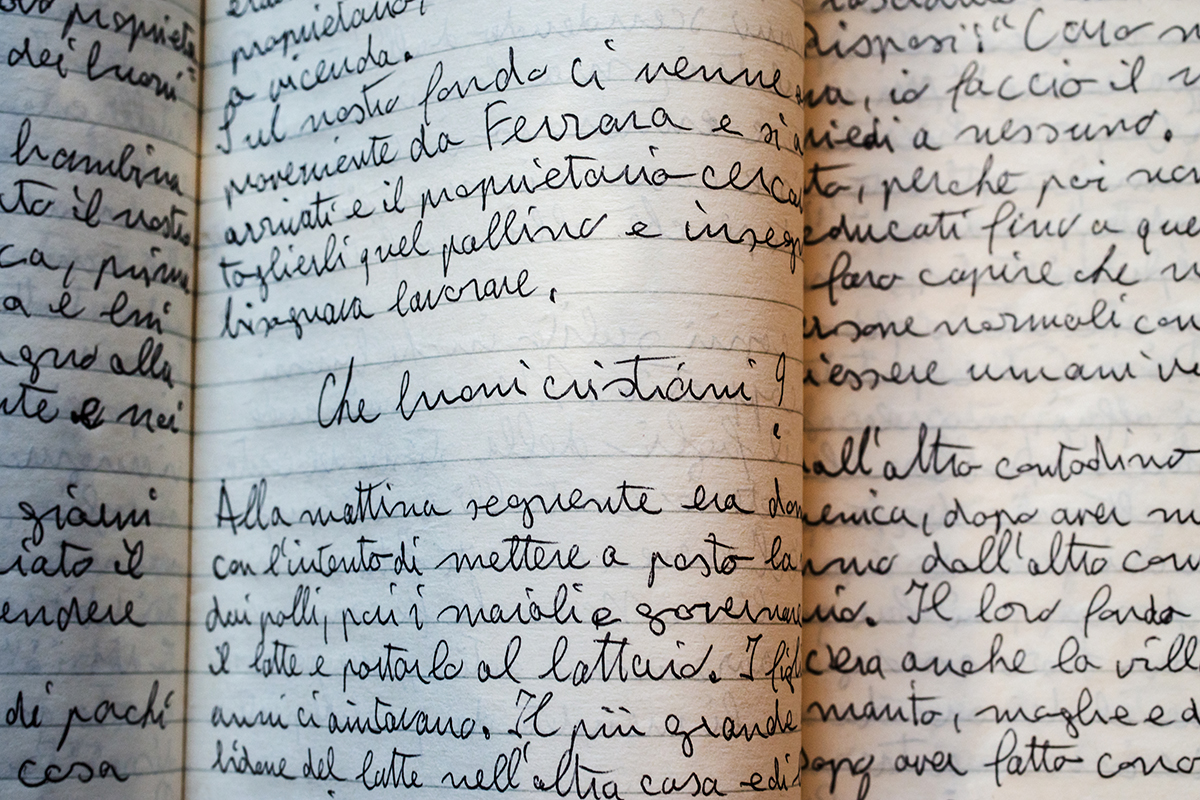 proprieta
dei buoni
bambina
to il nostro
prima
a e lui
alla
e nei
giorni
iato il
endere
di pochi
casa
proprietario
a vicenda.
Sul nostro fondo ci venne
proveniente da Ferrara e si
arrivati e il proprietario cerca
toglierli quel pallino e insegn
bisognava lavorare.
Che buoni cristiani!
Alla mattina seguente era dom
con l'intento di mettere a posto la
dai polli, poi i maiali e governare
il latte e portarlo al lattaio. I figl
anni ci aiutavano. Il più grande
bidone del latte nell'altra casa e di
disposi: "Caro
io faccio il
hiedi a nessuno.
to, perché poi
educati fino a que
farò capire che
ersone normali con
essere umani
all'altro contadino
enica, dopo aver
dall'altro con
Il loro fondo
c'era anche la vill
manto, maghe e
Dopo aver fatto